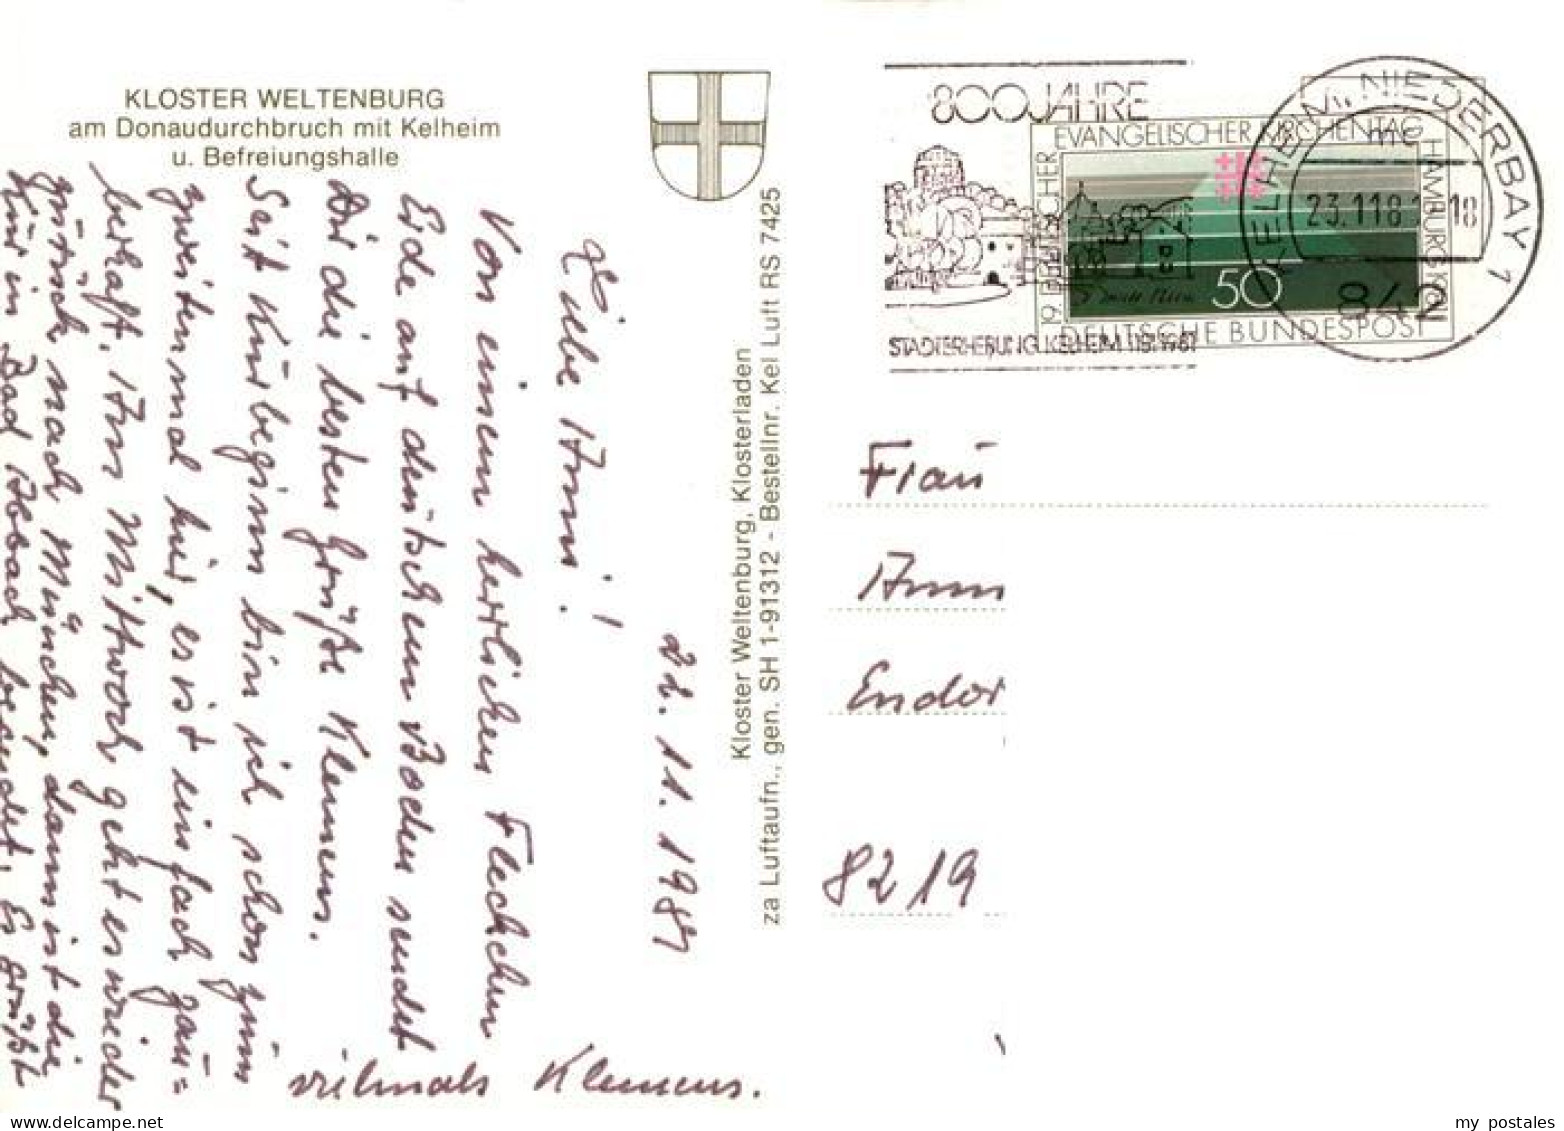 KLOSTER WELTENBURG
am Donaudurchbruch mit Kelheim
u. Befreiungshalle
22. 11. 1987
Liebe Anni!
Von einem herrlichen Fleckchen
Erde auf deutschem Boden sendet
Dir die besten Grüße Klemens.
Seit Kurbeginn bin ich schon zum
zweitenmal hier, es ist einfach zau=
berhaft. Am Mittwoch geht es wieder
zurück nach München, dann ist die
Kur in Bad Abbach beendet. Es grüßt
vielmals Klemens.
Kloster Weltenburg, Klosterladen
za Luftaufn., gen. SH 1-91312 - Bestellnr. Kel Luft RS 7425
800 JAHRE
STADTERHEBUNG KELHEIM 1181-1981
EVANGELISCHER KIRCHENTAG
HAMBURG
19
50
DEUTSCHE BUNDESPOST
KELHEIM, NIEDERBAY 1
mc
23.11.8
18
842
Frau
Ann
Endor
8219
my postales